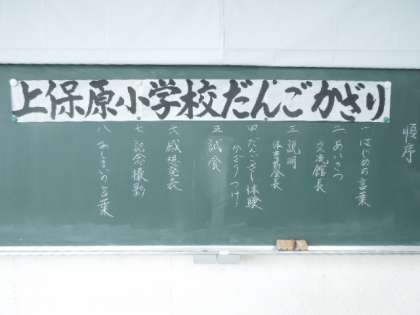 上保原小学校だんごかざり
順序
一はじめの言葉
二あいさつ
交流館長
三説明
体育協会長
四だんごさし体験
かざりつけ
五試食
六感想発表
七記念撮影
八おわりの言葉